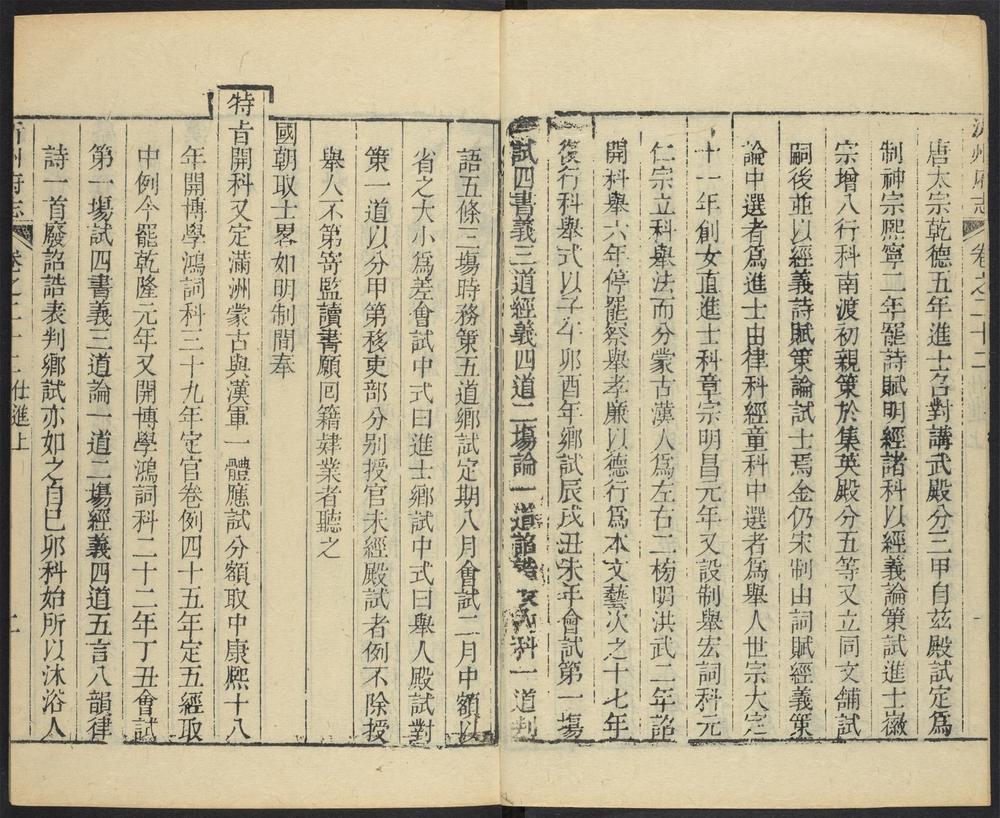 州府志 卷之二十二
唐太宗乾德五年進士名對講武殿分三甲自茲殿試定爲
制神宗熙寧二年罷詩賦明經諸科以經義論策試進士徽
宗增八行科南渡初親策於集英殿分五等又立同文舘試
嗣後並以經義詩賦策論試士焉金仍宋制由詞賦經義策
論中選者爲進士由律科經童科中選者爲舉人世宗大定
十一年創女直進士科章宗明昌元年又設制舉宏詞科元
仁宗立科舉法而分蒙古漢人爲左右二榜明洪武二年詔
開科舉六年停罷察舉孝廉以德行爲本文藝次之十七年
復行科舉式以子午卯酉年鄉試辰戌丑未年會試第一塲
試四書義三道經義四道二塲論一道詔誥表內科一道判
語五條三塲時務策五道鄉試定期八月會試二月中額以
省之大小爲差會試中式曰進士鄉試中式曰舉人殿試對
策一道以分甲第移吏部分别授官未經殿試者例不除授
舉人不第寄監讀書願回籍肄業者聽之
國朝取士畧如明制間奉
特旨開科又定滿洲蒙古與漢軍一體應試分額取中康熙十八
年開博學鴻詞科三十九年定官卷例四十五年定五經取
中例今罷乾隆元年又開博學鴻詞科二十二年丁丑會試
第一塲試四書義三道論一道二塲經義四道五言八韻律
詩一首廢詔誥表判鄉試亦如之自己卯科始所以沐浴人
州府志 卷之二十二 仕進上 二